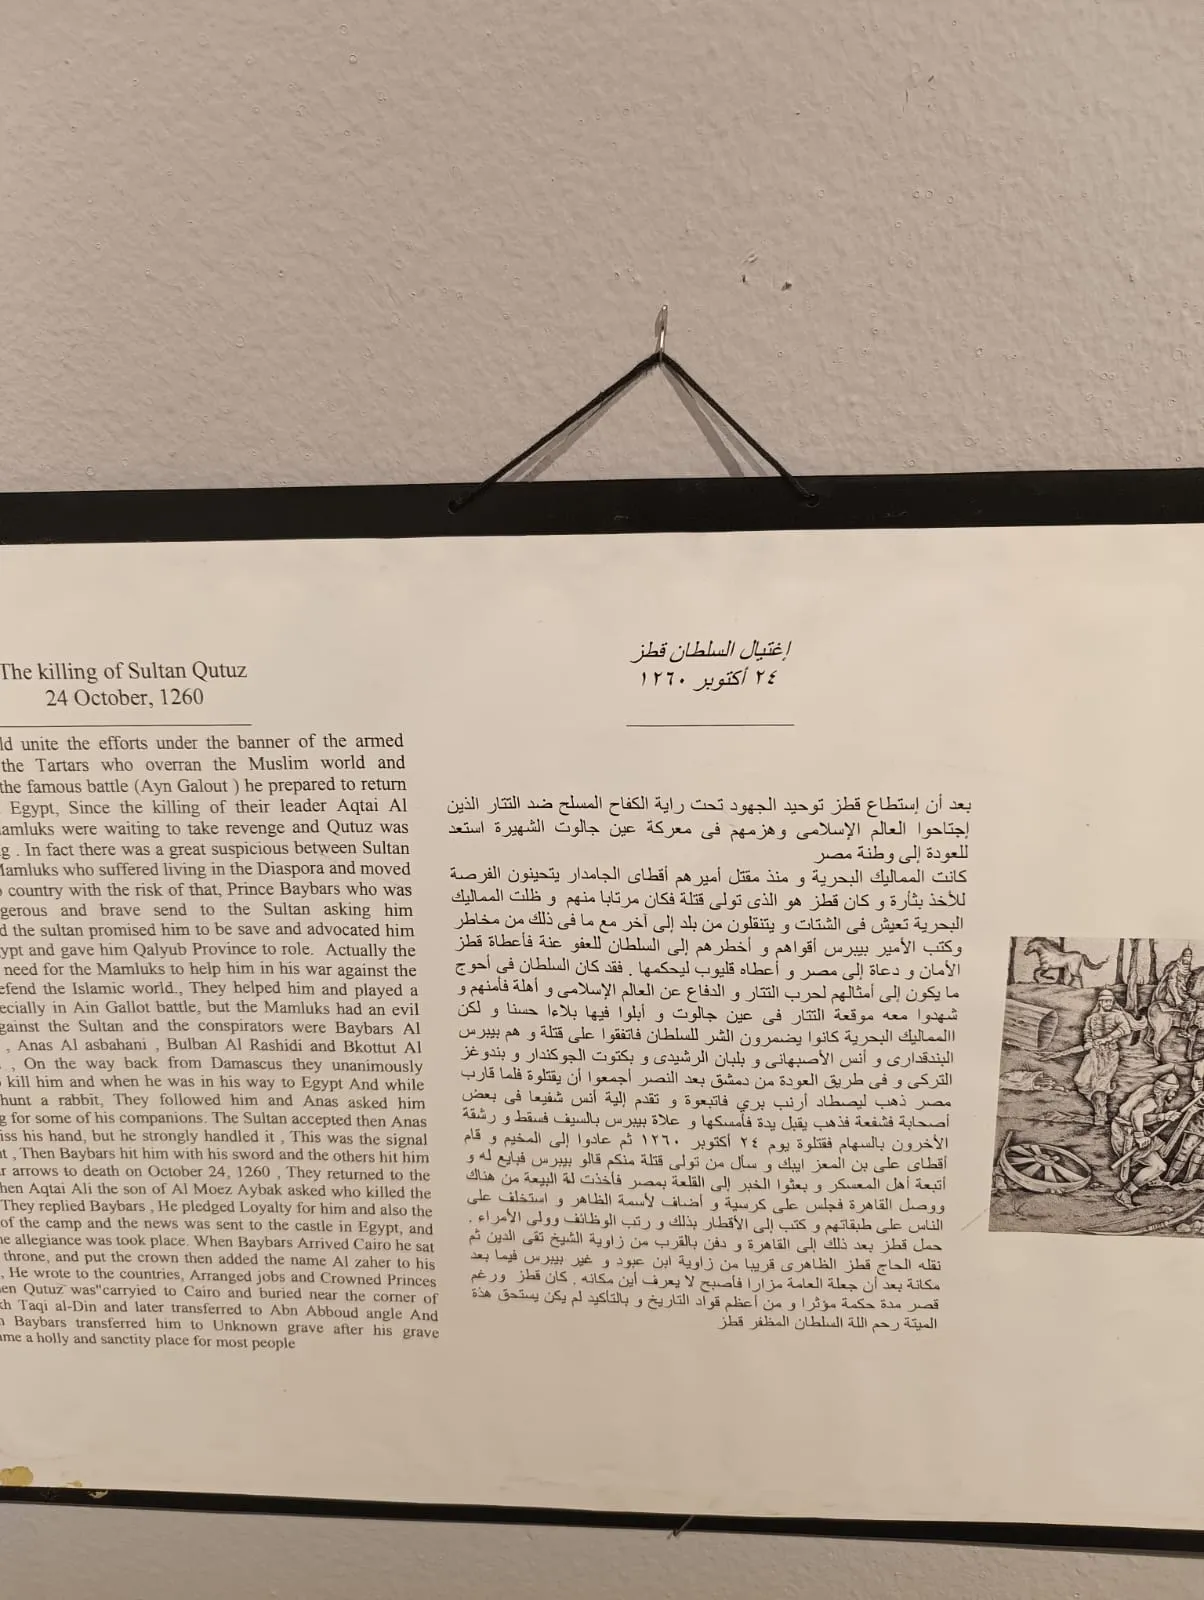 The killing of Sultan Qutuz
24 October, 1260
unite the efforts under the banner of the armed
the Tartars who overran the Muslim world and
the famous battle (Ayn Galout ) he prepared to return
Egypt, Since the killing of their leader Aqtai Al
were waiting to take revenge and Qutuz was
. In fact there was a great suspicious between Sultan
who suffered living in the Diaspora and moved
country with the risk of that, Prince Baybars who was
and brave send to the Sultan asking him
the sultan promised him to be save and advocated him
and gave him Qalyub Province to role. Actually the
need for the Mamluks to help him in his war against the
the Islamic world., They helped him and played a
in Ain Gallot battle, but the Mamluks had an evil
the Sultan and the conspirators were Baybars Al
, Anas Al asbahani , Bulban Al Rashidi and Bkottut Al
. , On the way back from Damascus they unanimously
kill him and when he was in his way to Egypt And while
hunt a rabbit, They followed him and Anas asked him
for some of his companions. The Sultan accepted then Anas
his hand, but he strongly handled it , This was the signal
, Then Baybars hit him with his sword and the others hit him
arrows to death on October 24, 1260 , They returned to the
Aqtai Ali the son of Al Moez Aybak asked who killed the
They replied Baybars , He pledged Loyalty for him and also the
of the camp and the news was sent to the castle in Egypt, and
allegiance was took place. When Baybars Arrived Cairo he sat
throne, and put the crown then added the name Al zaher to his
, He wrote to the countries, Arranged jobs and Crowned Princes
Qutuz was"carryied to Cairo and buried near the corner of
Taqi al-Din and later transferred to Abn Abboud angle And
Baybars transferred him to Unknown grave after his grave
a holly and sanctity place for most people
إغتيال السلطان قطز
٢٤ أكتوبر ١٢٦٠
بعد أن إستطاع قطز توحيد الجهود تحت راية الكفاح المسلح ضد التتار الذين
إجتاحوا العالم الإسلامى وهزمهم فى معركة عين جالوت الشهيرة استعد
للعودة إلى وطنة مصر
كانت المماليك البحرية و منذ مقتل أميرهم أقطاى الجامدار يتحينون الفرصة
للأخذ بثأرة و كان قطز هو الذى تولى قتلة فكان مرتابا منهم و ظلت المماليك
البحرية تعيش فى الشتات و يتنقلون من بلد إلى آخر مع ما فى ذلك من مخاطر
وكتب الأمير بيبرس أقواهم و أخطرهم إلى السلطان للعفو عنة فأعطاة قطز
الأمان و دعاة إلى مصر و أعطاه قليوب ليحكمها . فقد كان السلطان فى أحوج
ما يكون إلى أمثالهم لحرب التتار و الدفاع عن العالم الإسلامى و أهلة فأمنهم و
شهدوا معه موقعة التتار فى عين جالوت و أبلوا فيها بلاءا حسنا و لكن
االمماليك البحرية كانوا يضمرون الشر للسلطان فاتفقوا على قتلة و هم بيبرس
البندقدارى و أنس الأصبهانى و بلبان الرشيدى و بكتوت الجوكندار و بندوغز
التركى و فى طريق العودة من دمشق بعد النصر أجمعوا أن يقتلوة فلما قارب
مصر ذهب ليصطاد أرنب بري فاتبعوة و تقدم إلية أنس شفيعا فى بعض
أصحابة فشفعة فذهب يقبل يدة فأمسكها و علاة بيبرس بالسيف فسقط و رشقة
الآخرون بالسهام فقتلوة يوم ٢٤ أكتوبر ١٢٦٠ ثم عادوا إلى المخيم و قام
أقطاى على بن المعز ايبك و سأل من تولى قتلة منكم قالو بيبرس فبايع له و
أتبعة أهل المعسكر و بعثوا الخبر إلى القلعة بمصر فأخذت لة البيعة من هناك
ووصل القاهرة فجلس على كرسية و أضاف لأسمة الظاهر و استخلف على
الناس على طبقاتهم و كتب إلى الأقطار بذلك و رتب الوظائف وولى الأمراء .
حمل قطز بعد ذلك إلى القاهرة و دفن بالقرب من زاوية الشيخ تقى الدين ثم
نقله الحاج قطز الظاهرى قريبا من زاوية ابن عبود و غير بيبرس فيما بعد
مكانة بعد أن جعلة العامة مزارا فأصبح لا يعرف أين مكانه . كان قطز ورغم
قصر مدة حكمة مؤثرا و من أعظم قواد التاريخ و بالتأكيد لم يكن يستحق هذة
الميتة رحم اللة السلطان المظفر قطز